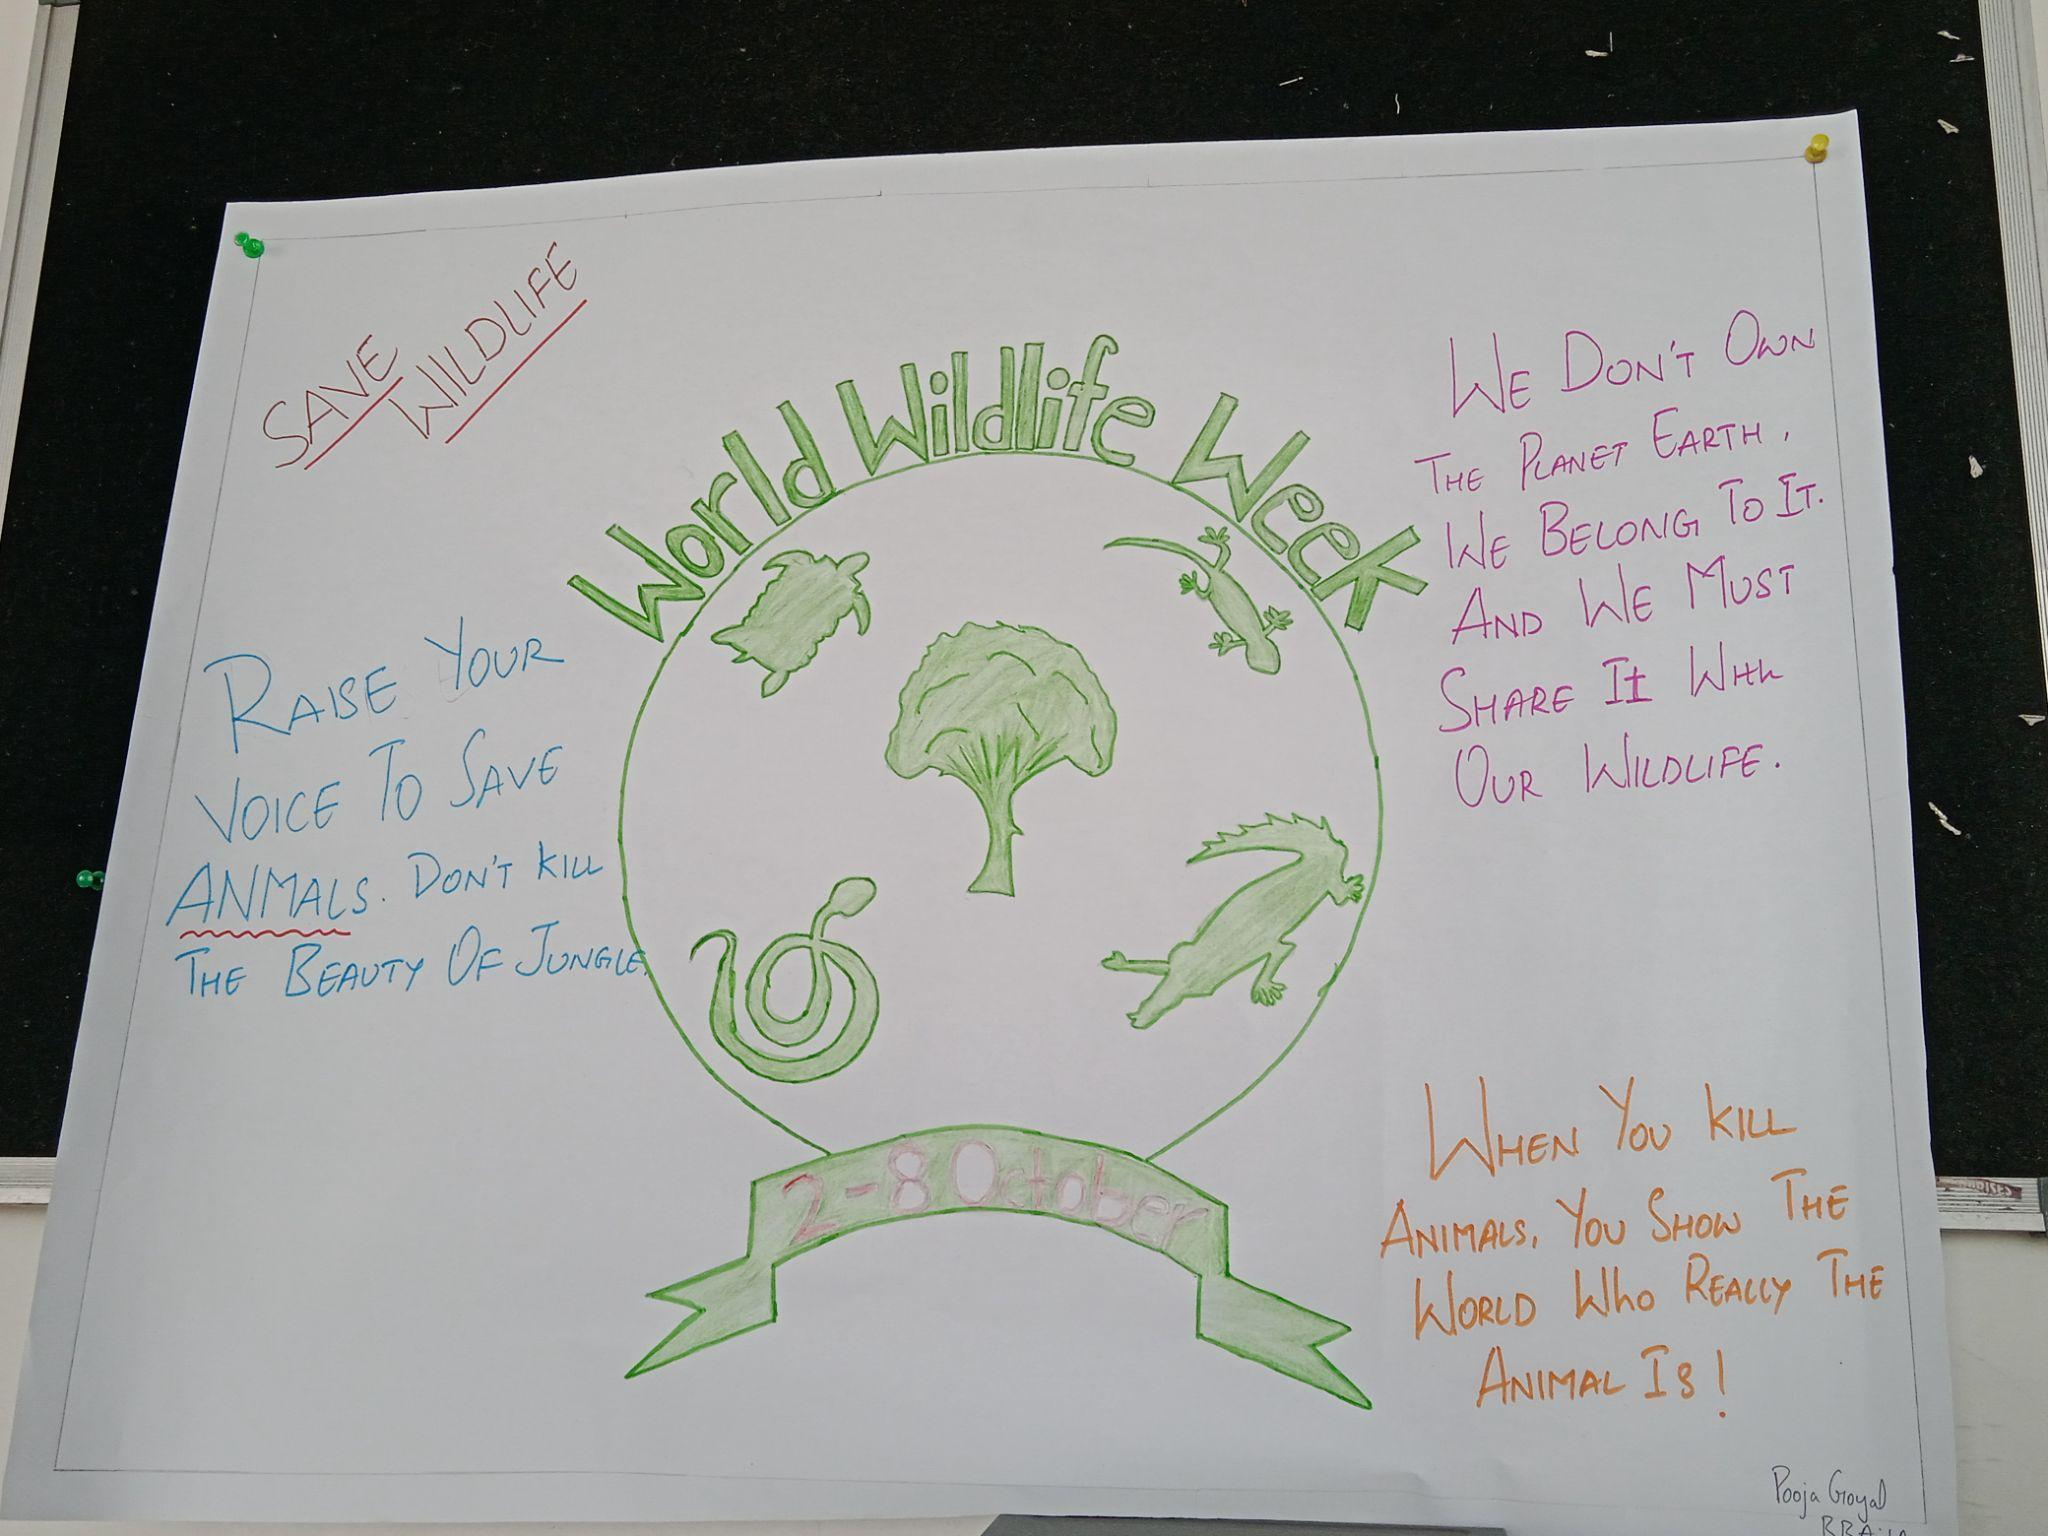 SAVE
WILDLIFE
World Wildlife Week
RAISE YOUR
VOICE TO SAVE
ANMALS. DON'T KILL
THE BEAUTY OF JUNGLE.
WE DON'T OWN
THE PLANET EARTH,
WE BELONG TO IT.
AND WE MUST
SHARE IT WITH
OUR WILDLIFE.
2-8 October
WHEN YOU KILL
ANIMALS, YOU SHOW THE
WORLD WHO REALLY THE
ANIMAL IS!
Pooja Goyal